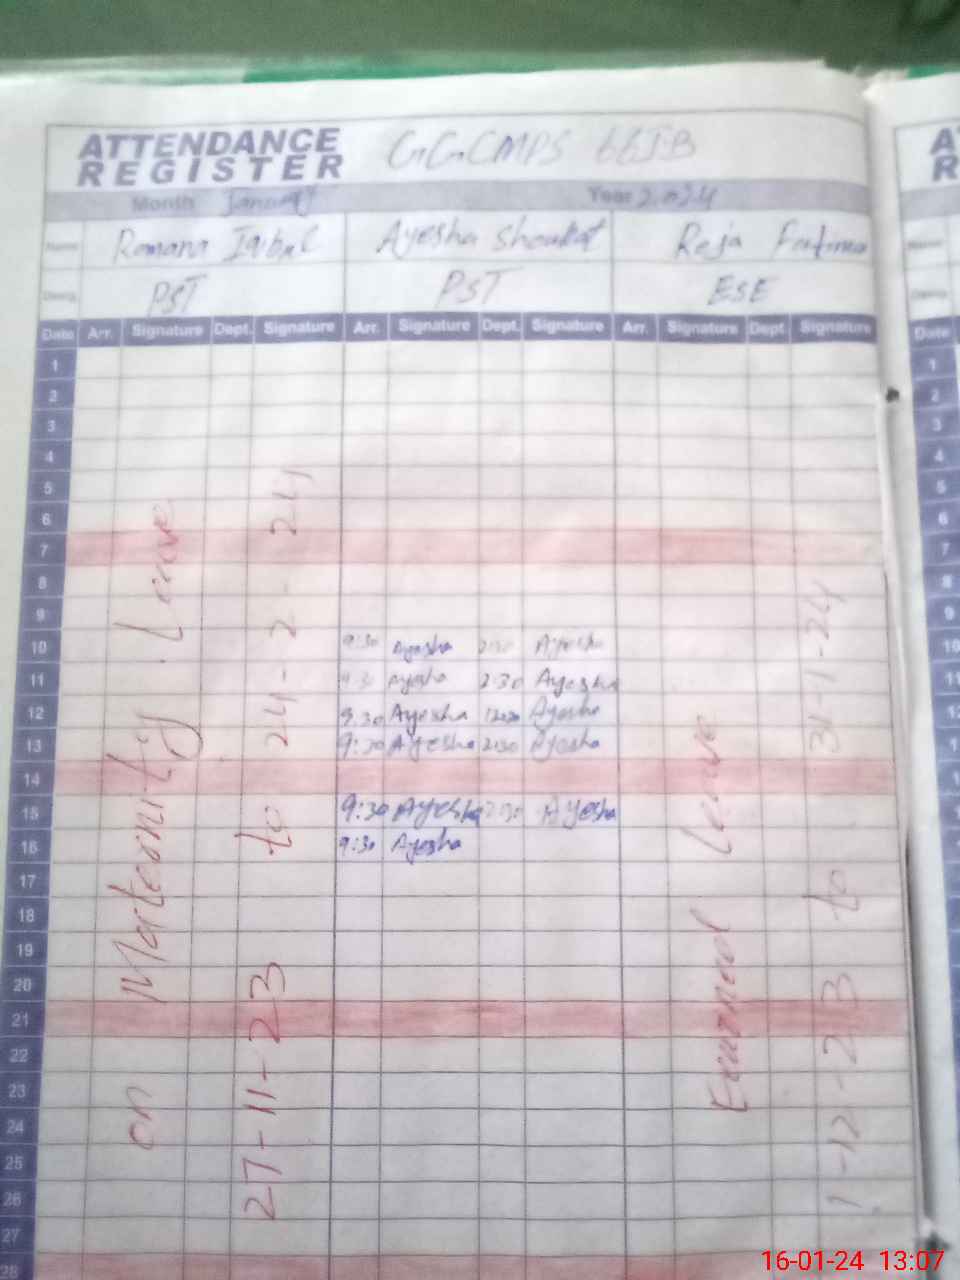 ATTENDANCE REGISTER GGCMPS 66J.B
Month January Year 2024
Name Romana Iqbal Ayesha Shoukat Reja Fatima
Desig. PST PST ESE
Date Arr. Signature Dept. Signature Arr. Signature Dept. Signature Arr. Signature Dept. Signature
1
2
3
4
5
6
7
8
9
10 9:30 Ayesha 2:30 Ayesha
11 9:30 Ayesha 2:30 Ayesha
12 9:30 Ayesha 12:30 Ayesha
13 9:30 Ayesha 2:30 Ayesha
14
15 9:30 Ayesha 2:30 Ayesha
16 9:30 Ayesha
17
18
19
20
21
22
23
24
25
26
27
28
on Maternity Leave
27-11-23 to 24-2-24
Earned Leave
1-12-23 to 31-1-24
A
R
Name
Desig.
Date
1
2
3
4
5
6
7
8
9
10
11
12
16-01-24 13:07